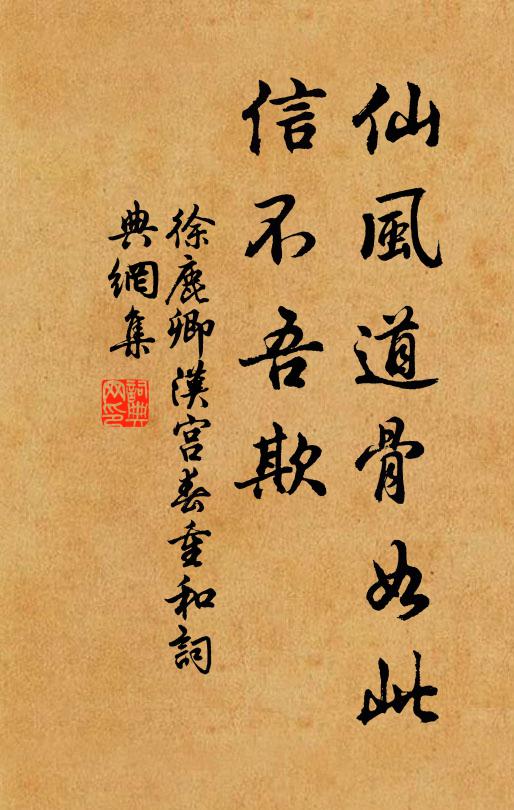 仙風道骨如此
信不吾欺
徐鹿卿漢宮春重和詞
典網集
詞典
网印